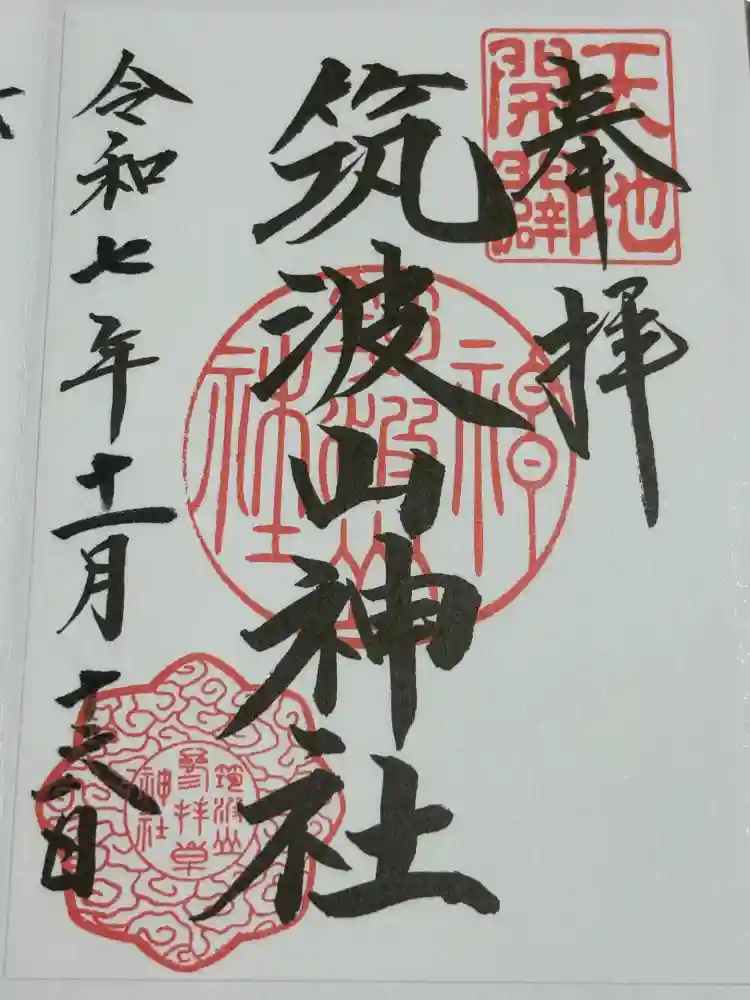 奉拝
天地
開闢
筑波山神社
筑波山
神社
筑波山
参拝章
神社
令和七年十一月十六日